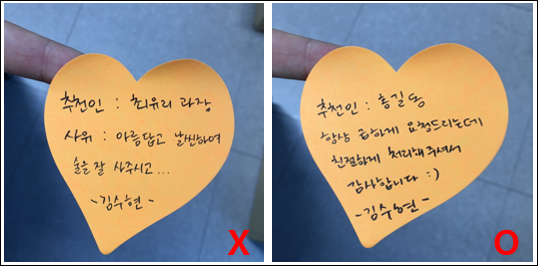 추천인 : 최유리 과장
사위 : 아름답고 날씬하여
술을 잘 사주시고...
-김수현-
X
추천인 : 홍길동
항상 급하게 요청드리는데
친절하게 처리해주셔서
감사합니다 :)
-김수현-
O